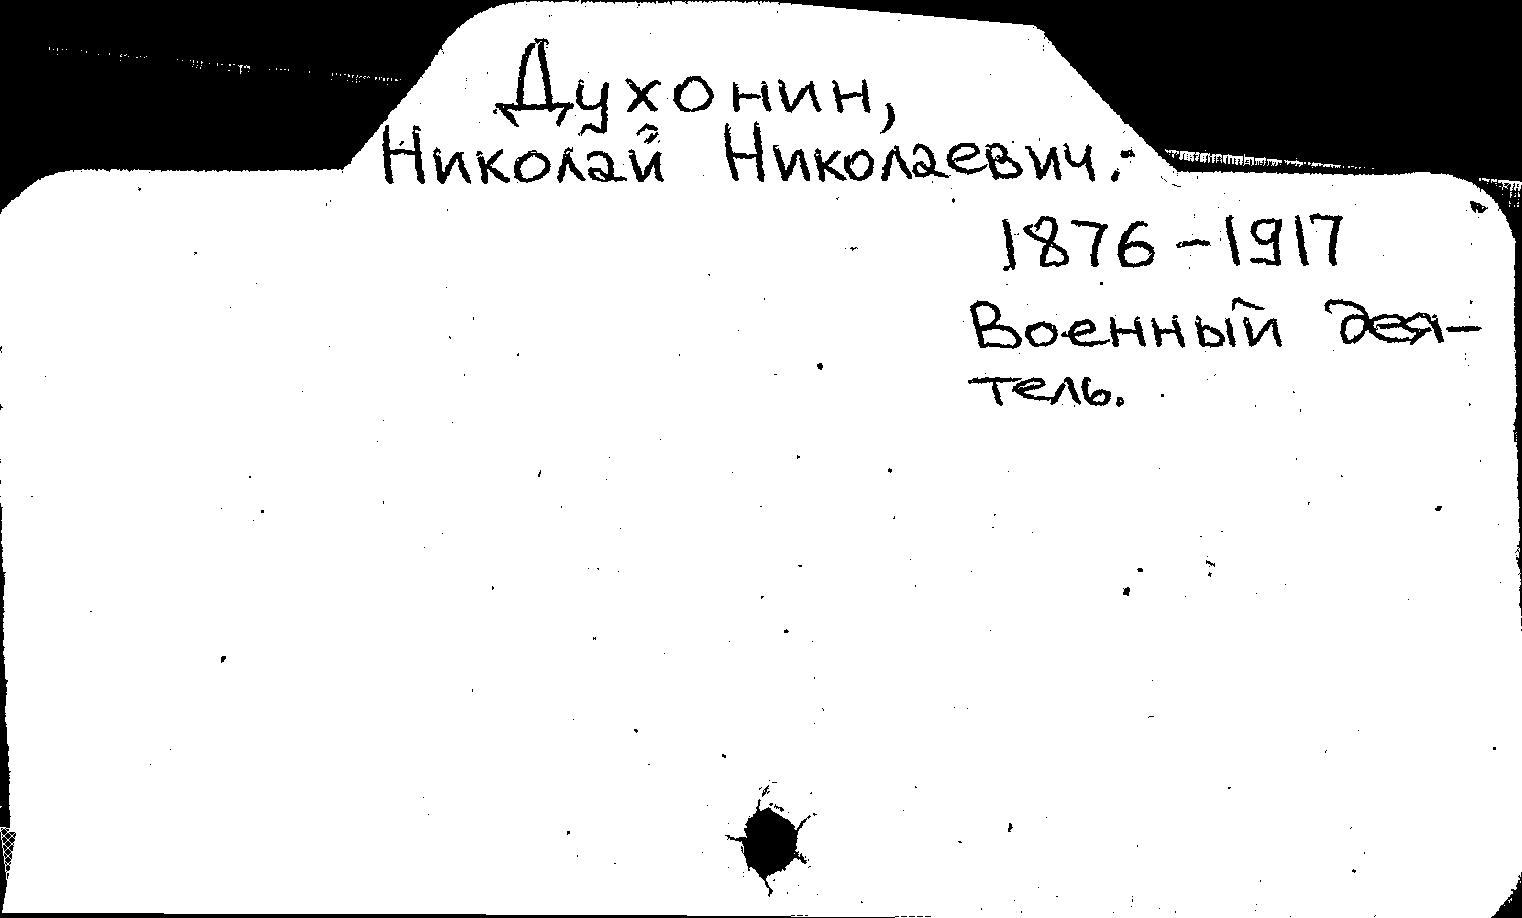 Духонин,
Николай Николаевич.-
1876-1917
Военный дея-
тель.